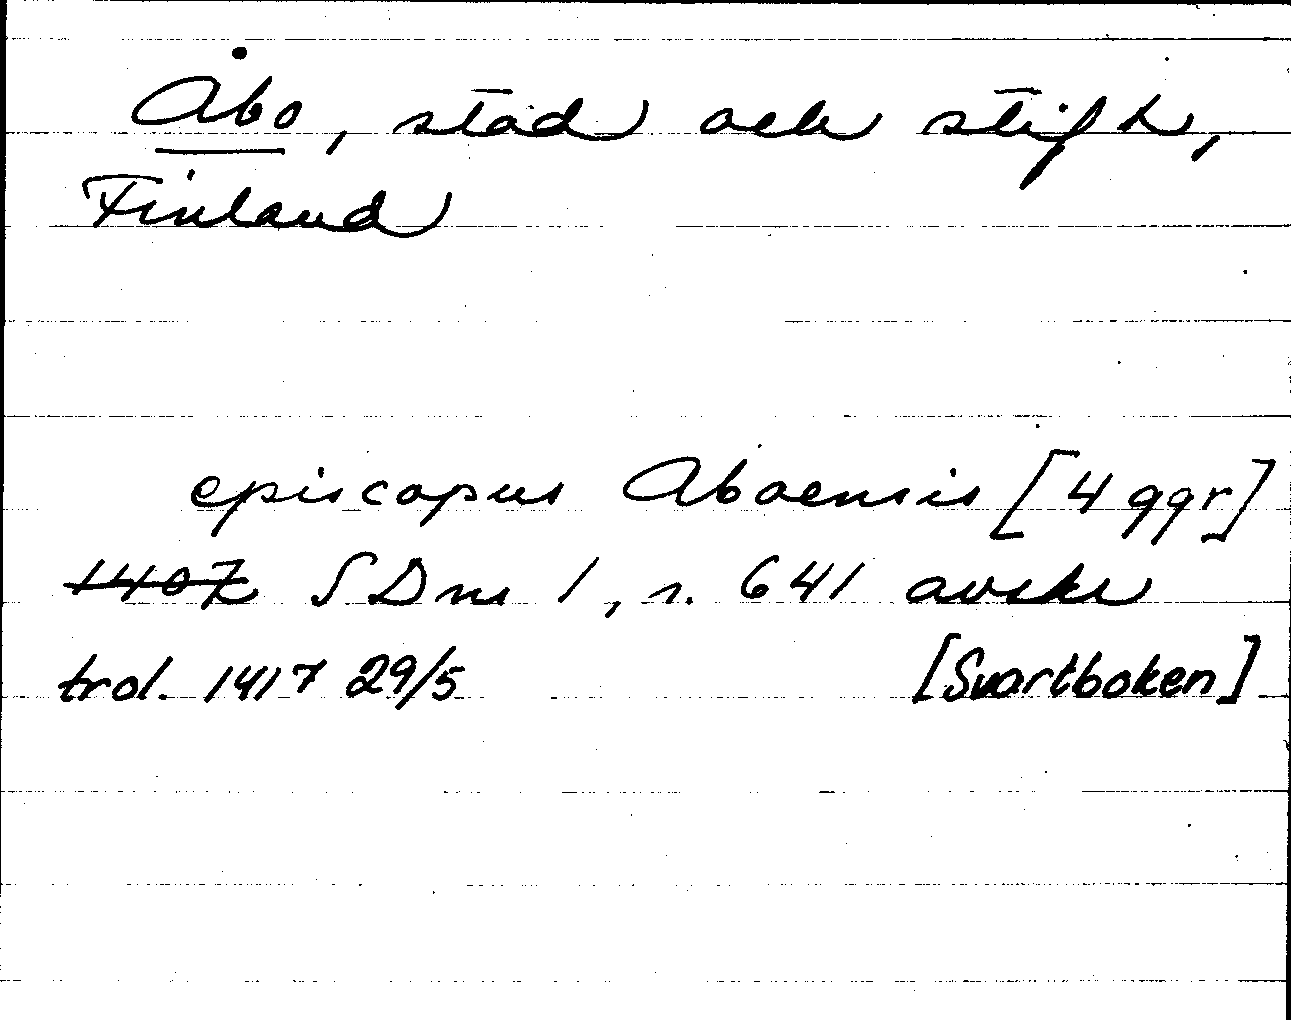 Åbo, stad och stift,
Finland
episcopus Aboensis [4 ggr]
1407 SDns 1, n. 641 avskr
trol. 1417 29/5 [Svartboken]